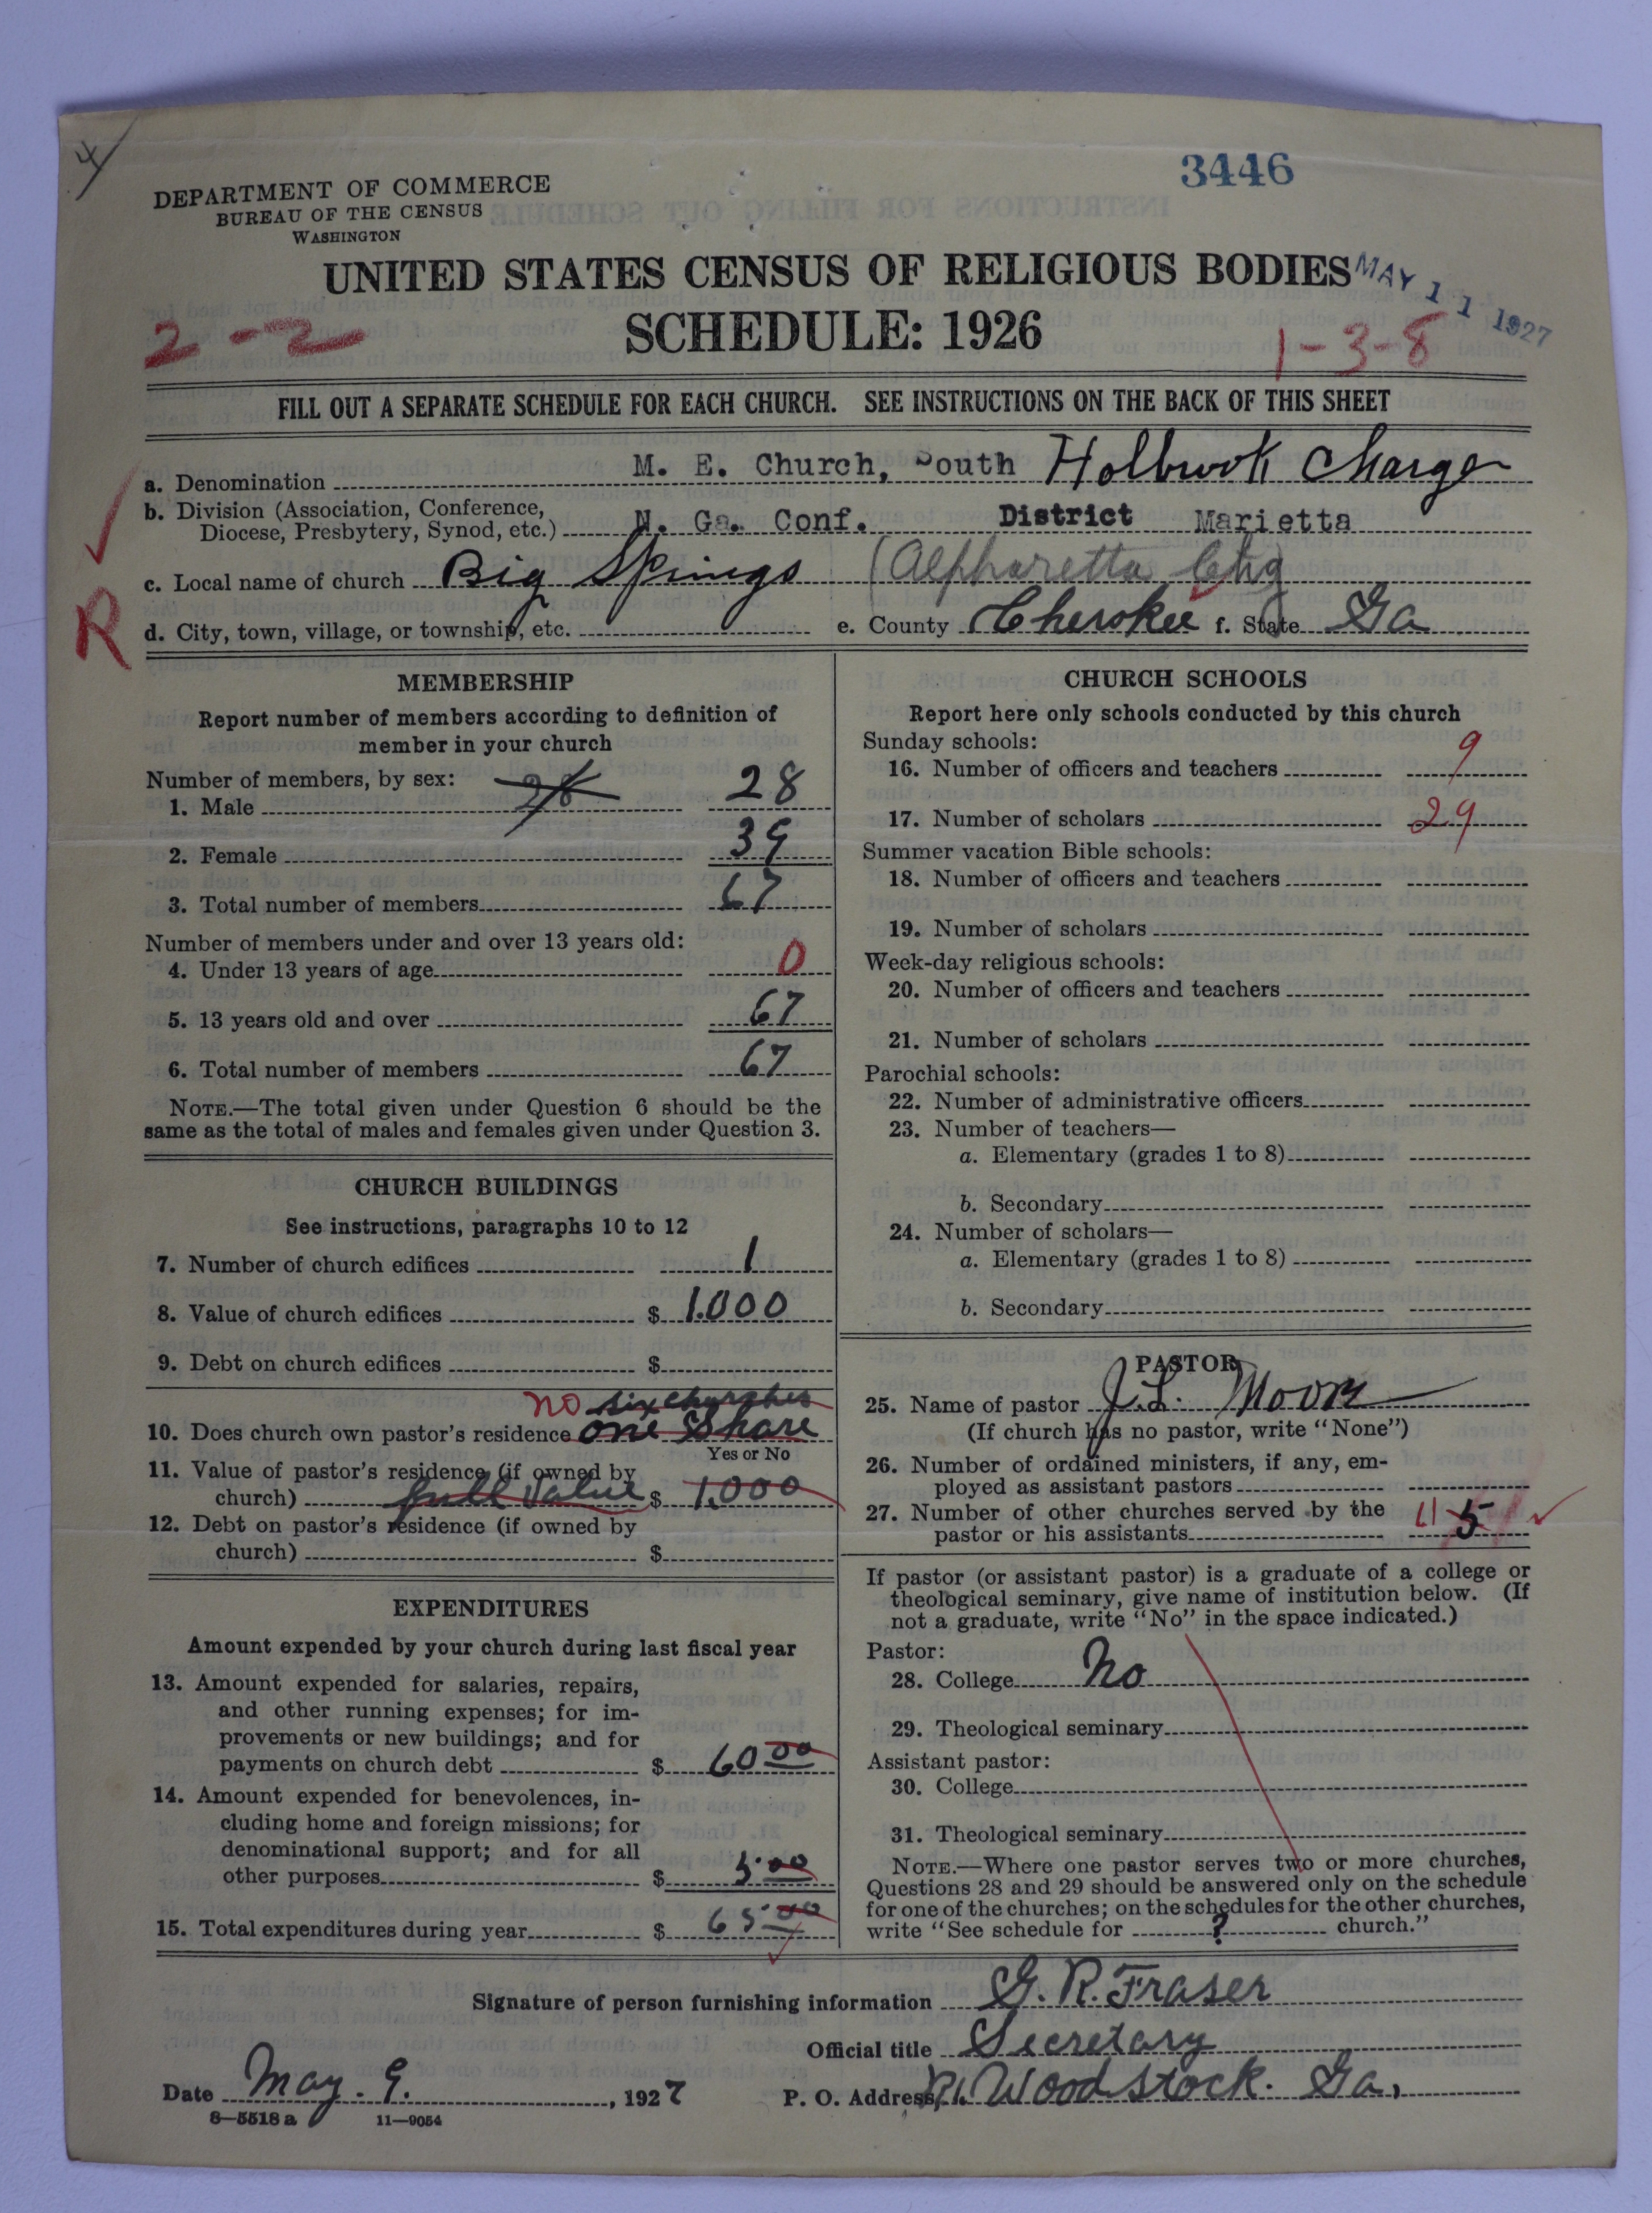 4
3446
DEPARTMENT OF COMMERCE
BUREAU OF THE CENSUS
WASHINGTON
UNITED STATES CENSUS OF RELIGIOUS BODIES
MAY 11 1927
SCHEDULE: 1926
2-2
1-3-8
FILL OUT A SEPARATE SCHEDULE FOR EACH CHURCH. SEE INSTRUCTIONS ON THE BACK OF THIS SHEET
a. Denomination M. E. Church, South Holbrook Charge
b. Division (Association, Conference,
Diocese, Presbytery, Synod, etc.) N. Ga. Conf. District Marietta
c. Local name of church Big Springs (Alpharetta Chg
R
d. City, town, village, or township, etc. e. County Cherokee f. State Ga
MEMBERSHIP
Report number of members according to definition of
member in your church
Number of members, by sex:
1. Male 28 28
2. Female 39
3. Total number of members 67
Number of members under and over 13 years old:
4. Under 13 years of age 0
5. 13 years old and over 67
6. Total number of members 67
NOTE.—The total given under Question 6 should be the
same as the total of males and females given under Question 3.
CHURCH BUILDINGS
See instructions, paragraphs 10 to 12
7. Number of church edifices 1
8. Value of church edifices $ 1.000
9. Debt on church edifices $
no six churches
10. Does church own pastor's residence one Share
Yes or No
11. Value of pastor's residence (if owned by
church) full value $ 1,000
12. Debt on pastor's residence (if owned by
church) $
EXPENDITURES
Amount expended by your church during last fiscal year
13. Amount expended for salaries, repairs,
and other running expenses; for im-
provements or new buildings; and for
payments on church debt $ 60 00
14. Amount expended for benevolences, in-
cluding home and foreign missions; for
denominational support; and for all
other purposes $ 5.00
15. Total expenditures during year $ 65.00
CHURCH SCHOOLS
Report here only schools conducted by this church
Sunday schools:
16. Number of officers and teachers 9
17. Number of scholars 29
Summer vacation Bible schools:
18. Number of officers and teachers
19. Number of scholars
Week-day religious schools:
20. Number of officers and teachers
21. Number of scholars
Parochial schools:
22. Number of administrative officers
23. Number of teachers—
a. Elementary (grades 1 to 8)
b. Secondary
24. Number of scholars—
a. Elementary (grades 1 to 8)
b. Secondary
PASTOR
25. Name of pastor J.L. Moore
(If church has no pastor, write "None")
26. Number of ordained ministers, if any, em-
ployed as assistant pastors
27. Number of other churches served by the
pastor or his assistants 5
If pastor (or assistant pastor) is a graduate of a college or
theological seminary, give name of institution below. (If
not a graduate, write "No" in the space indicated.)
Pastor:
28. College No
29. Theological seminary
Assistant pastor:
30. College
31. Theological seminary
NOTE.—Where one pastor serves two or more churches,
Questions 28 and 29 should be answered only on the schedule
for one of the churches; on the schedules for the other churches,
write "See schedule for ? church."
Signature of person furnishing information G. R. Fraser
Official title Secretary
Date May. 9. , 1927 P. O. Address R1. Woodstock. Ga,
8—5518 a 11—9054